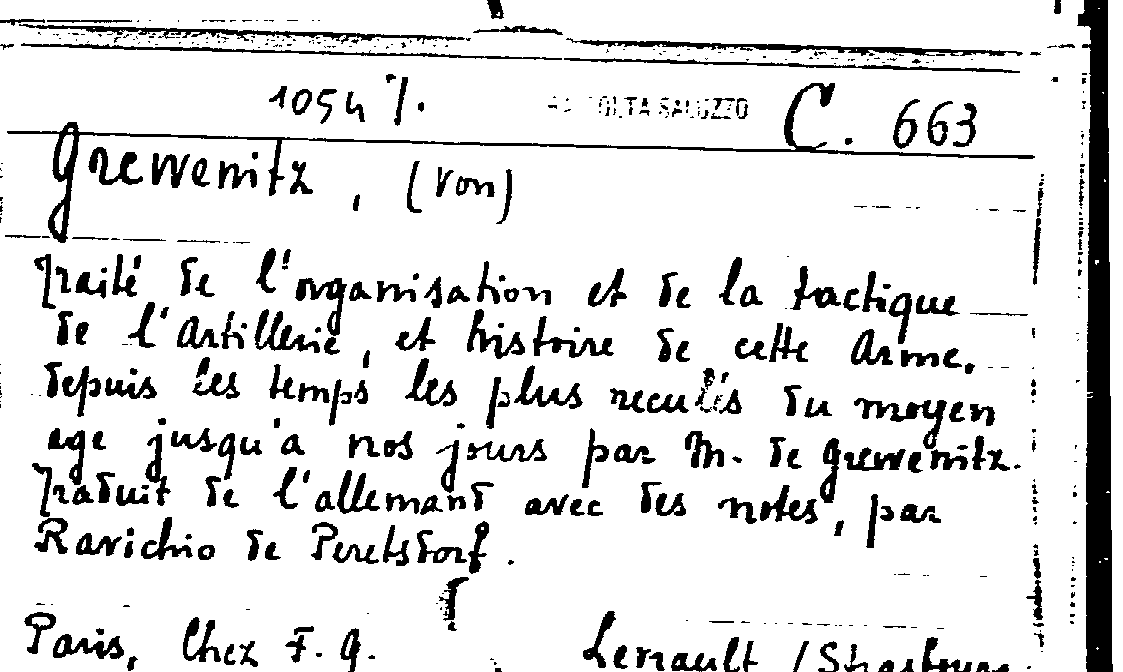 1054 7. RACCOLTA SALUZZO C. 663
Grewenitz, (von)
Traité de l'organisation et de la tactique
de l'Artillerie, et histoire de cette Arme.
depuis les temps les plus reculés du moyen
age jusqu'a nos jours par M. de Grewenitz.
Traduit de l'allemant avec des notes, par
Ravichio de Peretsdorf.
Paris, Chez F. G. Levrault / Strasbourg